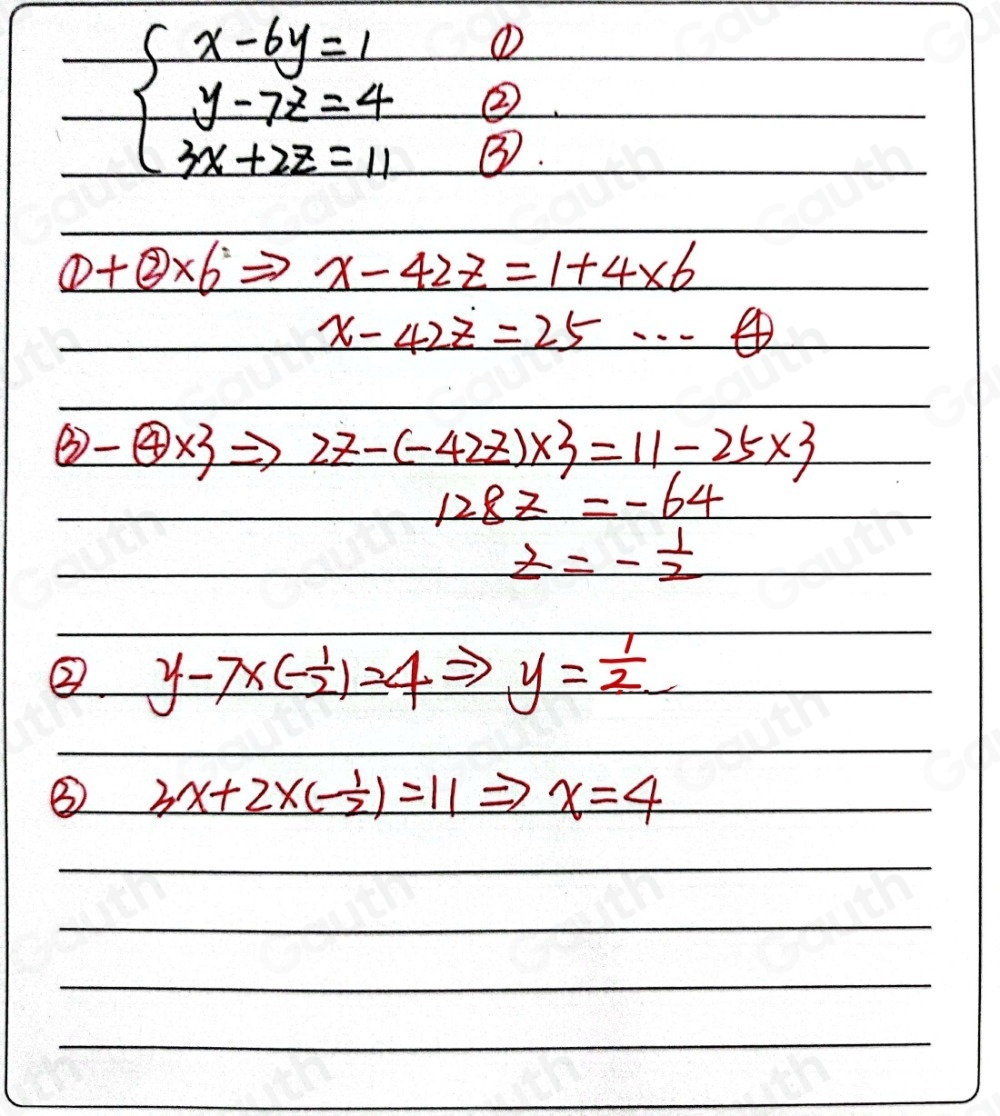 x - 6y = 1 ①
y - 7z = 4 ②.
3x + 2z = 11 ③.
① + ② × 6 ⇒ x - 42z = 1 + 4 × 6
x - 42z = 25 ... ④
③ - ④ × 3 ⇒ 2z - (-42z) × 3 = 11 - 25 × 3
128z = -64
z = -1/2
②. y - 7 × (-1/2) = 4 ⇒ y = 1/2
③ 3x + 2 × (-1/2) = 11 ⇒ x = 4
Gauth